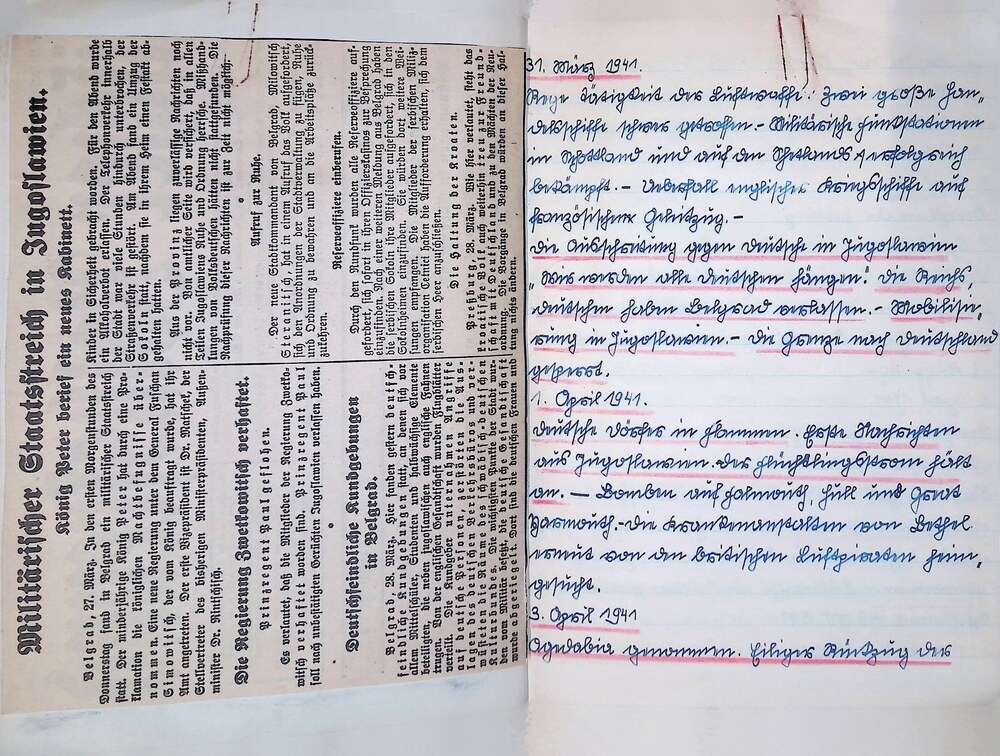 Militärischer Staatsstreich in Jugoslawien.
König Peter berief ein neues Kabinett.
Belgrad, 27. März. In den ersten Morgenstunden des
Donnerstag fand in Belgrad ein militärischer Staatsstreich
statt. Der minderjährige König Peter hat durch eine Pro-
klamation die königlichen Machtbefugnisse über-
nommen. Eine neue Regierung unter dem General Duschan
Simowitsch, der vom König beauftragt wurde, hat ihr
Amt angetreten. Der erste Vizepräsident ist Dr. Matschek, der
Stellvertreter des bisherigen Ministerpräsidenten, Außen-
minister Dr. Nintschitsch.
Die Regierung Zwetkowitsch verhaftet.
Prinzregent Paul geflohen.
Es verlautet, daß die Mitglieder der Regierung Zwetko-
witsch verhaftet worden sind. Prinzregent Paul
soll nach unbestätigten Gerüchten Jugoslawien verlassen haben.
Deutschfeindliche Kundgebungen
in Belgrad.
Belgrad, 28. März. Hier fanden gestern deutsch-
feindliche Kundgebungen statt, an denen sich vor
allem Mittelschüler, Studenten und halbwüchsige Elemente
beteiligten, die neben jugoslawischen auch englische Fahnen
trugen. Von der englischen Gesandtschaft wurden Flugblätter
verteilt. Die Kundgeber unternahmen Angriffe
auf deutsche Personen, zerstörten die Aus-
lagen des deutschen Verkehrsbüros und ver-
wüsteten die Räume des schwäbisch-deutschen
Kulturbundes. Die wichtigsten Punkte der Stadt wur-
den von Militär besetzt, die deutsche Gesandtschaft
wurde abgeriegelt. Dort sind die deutschen Frauen und
Kinder in Sicherheit gebracht worden. Für den Abend wurde
ein Alkoholverbot erlassen. Der Telephonverkehr innerhalb
der Stadt war viele Stunden hindurch unterbrochen, der
Straßenverkehr ist gestört. Am Abend fand ein Umzug der
Sokoln statt, nachdem sie in ihrem Heim einen Festakt ab-
gehalten hatten.
Aus der Provinz liegen zuverlässige Nachrichten noch
nicht vor. Von amtlicher Seite wird versichert, daß in allen
Teilen Jugoslawiens Ruhe und Ordnung herrsche. Mißhand-
lungen von Volksdeutschen hätten nicht stattgefunden. Die
Nachprüfung dieser Nachrichten ist zur Zeit nicht möglich.
Aufruf zur Ruhe.
Der neue Stadtkommandant von Belgrad, Milowitsch
hat in einem Aufruf das Volk aufgefordert,
sich den Anordnungen der Stadtverwaltung zu fügen, Ruhe
und Ordnung zu bewahren und an die Arbeitsplätze zurück-
zukehren.
Reserveoffiziere einberufen.
Durch den Rundfunk wurden alle Reserveoffiziere auf-
gefordert, sich sofort in ihren Offizierskasinos zur Besprechung
einzufinden. Nach einer weiteren Meldung aus Belgrad haben
die serbischen Sokoln ihre Mitglieder aufgefordert, sich in den
Sokolnheimen einzufinden. Sie würden dort weitere Wei-
sungen erhalten. Die Mitglieder der serbischen Miliz-
organisation Cetnici haben die Aufforderung erhalten, sich dem
serbischen Heer anzuschließen.
Die Haltung der Kroaten.
Preßburg, 28. März. Wie hier verlautet, steht das
kroatische Volk auch weiterhin treu zur Freund-
schaft mit Deutschland und zu den Mächten der Neu-
ordnung. Die Vorgänge in Belgrad würden an dieser Hal-
tung nichts ändern.
31. März 1941.
Rege tätigkeit der Luftwaffe: Zwei große Han-
delsschiffe schwer getroffen. – Militärische Funkstationen
in Schottland und auf den Shetlands erfolgreich
bekämpft. – Ueberfall englischer Kriegsschiffe auf
französischen Geleitzug. –
Die Ausschreitung gegen Deutsche in Jugoslawien
„Wir werden alle Deutschen hängen." Die Reichs-
deutschen haben Belgrad verlassen. – Mobilisie-
rung in Jugoslawien. – Die Grenze nach Deutschland
gesperrt.
1. April 1941.
Deutsche Dörfer in Flammen. Erste Nachrichten
aus Jugoslawien. Der Flüchtlingsstrom hält
an. – Bomben auf Falmouth, Hull und Great
Yarmouth. – Die Krankenanstalten von Bethel
erneut von den britischen Luftpiraten heim-
gesucht.
3. April 1941
Agedabia genommen. Eiliger Rückzug der